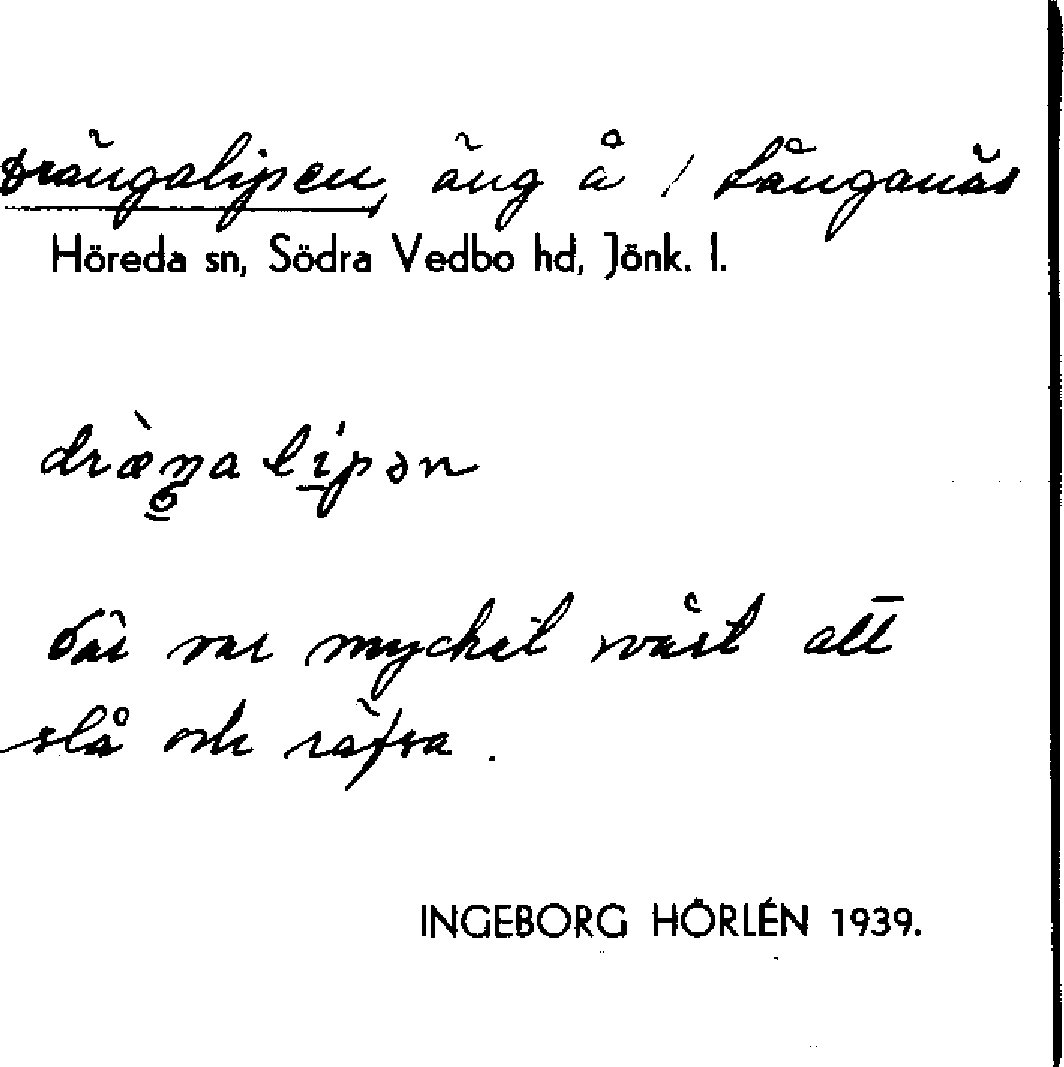 Drängalipen, äng å / Långanäs
Höreda sn, Södra Vedbo hd, Jönk. l.
dræ̀ŋa lípən
Där var mycket svårt att
slå och räfsa.
INGEBORG HÖRLÉN 1939.